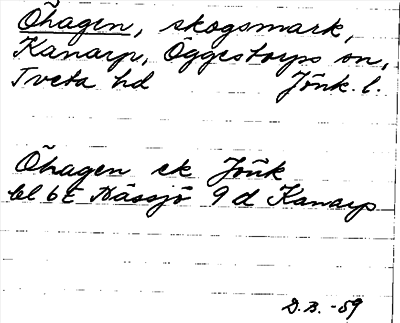 Öhagen, skogsmark,
Kanarp, Öggestorps sn,
Tveta hd Jönk. l.
Öhagen ek Jönk
bl 6E Nässjö 9 d Kanarp
D.B. -59